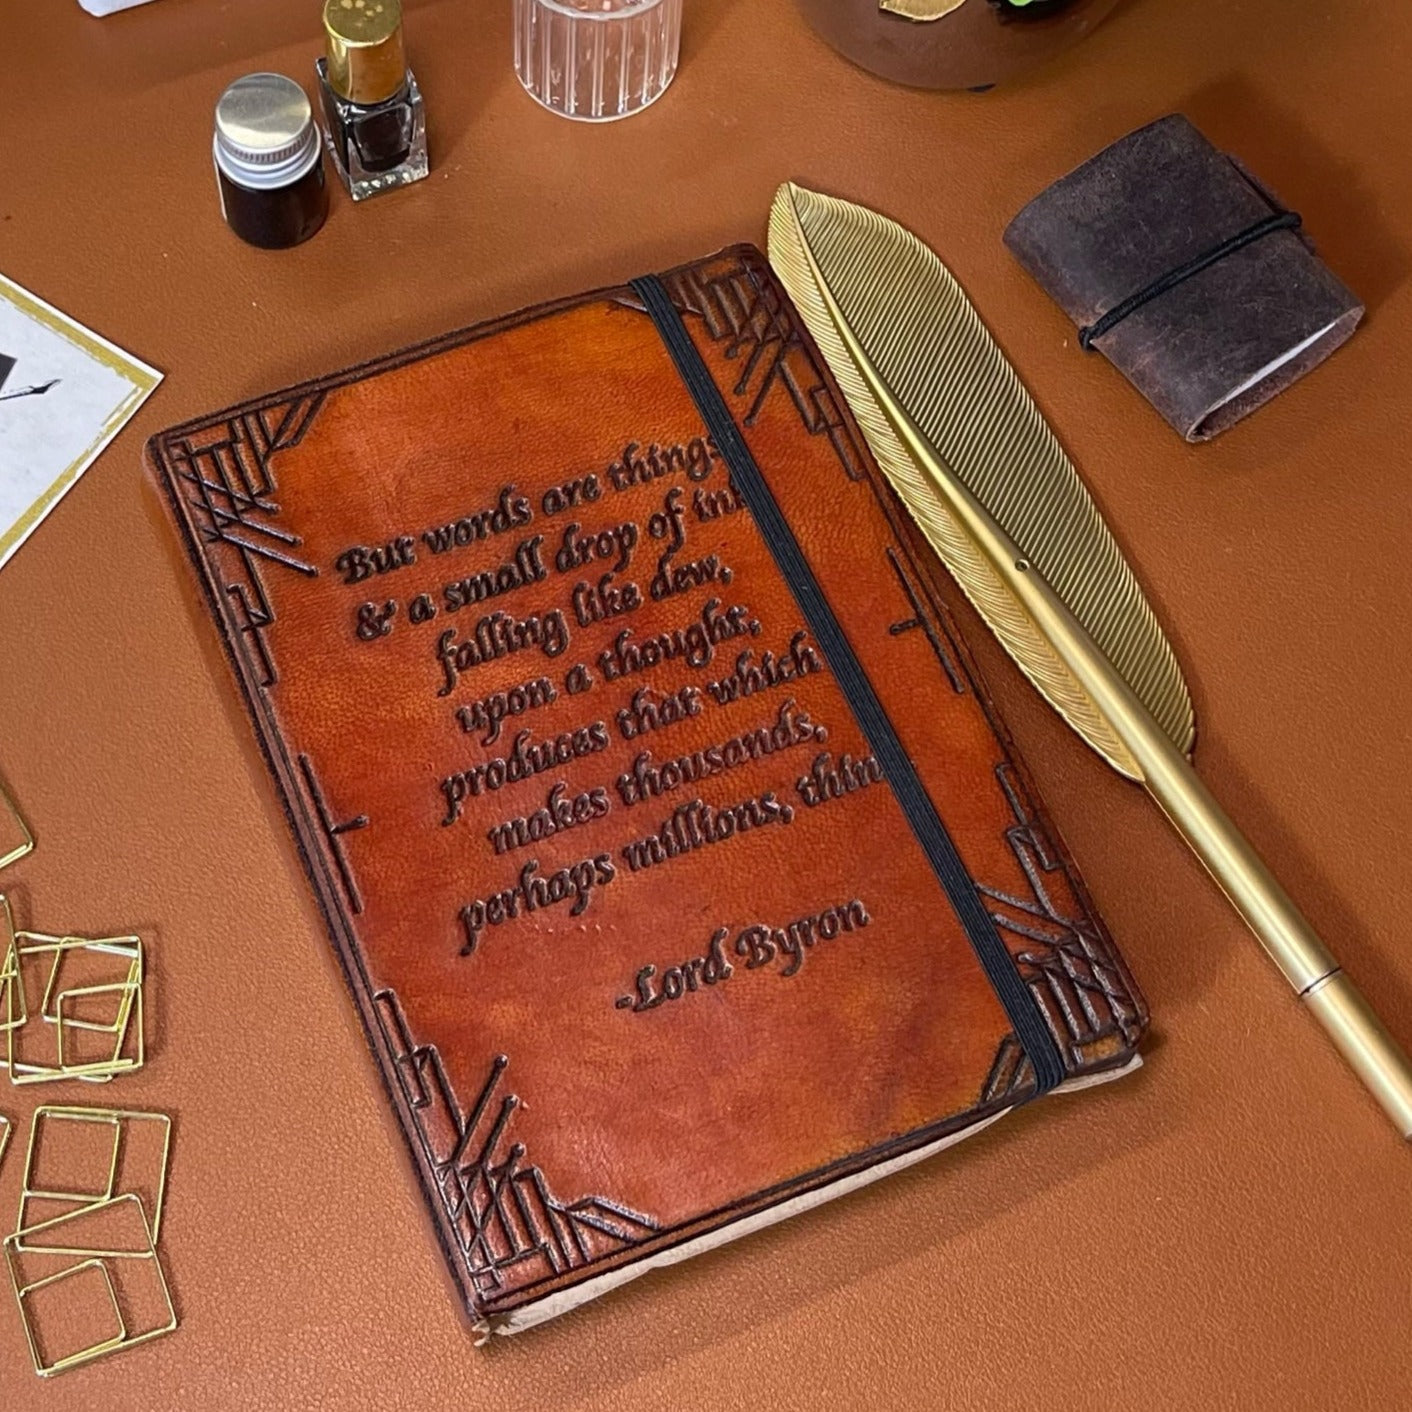 But words are things
& a small drop of ink
falling like dew,
upon a thought,
produces that which
makes thousands,
perhaps millions, thin
-Lord Byron